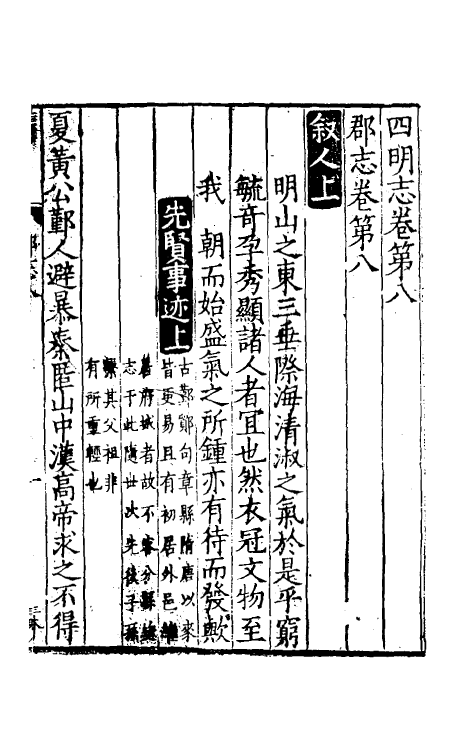 四明志卷第八
郡志卷第八
叙人上
明山之東三垂際海清淑之氣於是乎窮
毓竒孕秀顯諸人者冝也然衣冠文物至
我 朝而始盛氣之所鍾亦有待而發歟
先賢事迹上
古鄞鄮句章縣隋唐以來
皆更易且有初居外邑
府城者故不容分縣
志于此隨世次先後子孫
其父祖非
有所重輕也
夏黃公鄞人避暴秦匿山中漢高帝求之不得